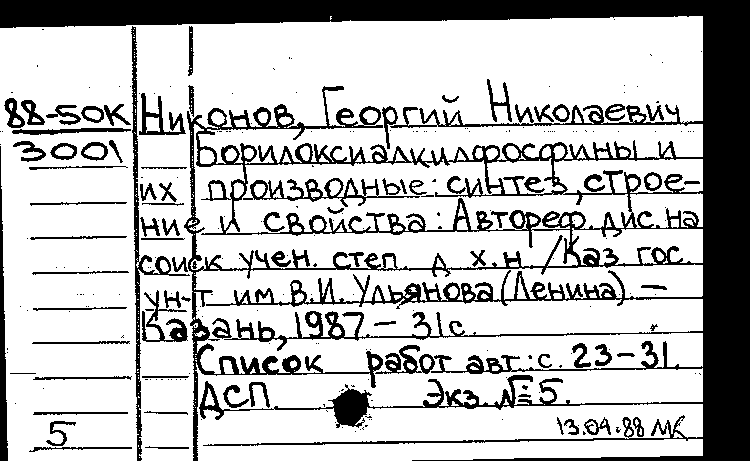 88-50К Никонов, Георгий Николаевич
3001 Борилоксиалкилфосфины и
их производные: синтез, строе-
ние и свойства: Автореф. дис. на
соиск учен. степ. д х.н. /Каз гос.
ун-т им. В.И. Ульянова (Ленина). —
Казань, 1987. — 31 с.
Список работ авт.: с. 23-31.
ДСП. Экз. № 5.
5 13.04.88 МК